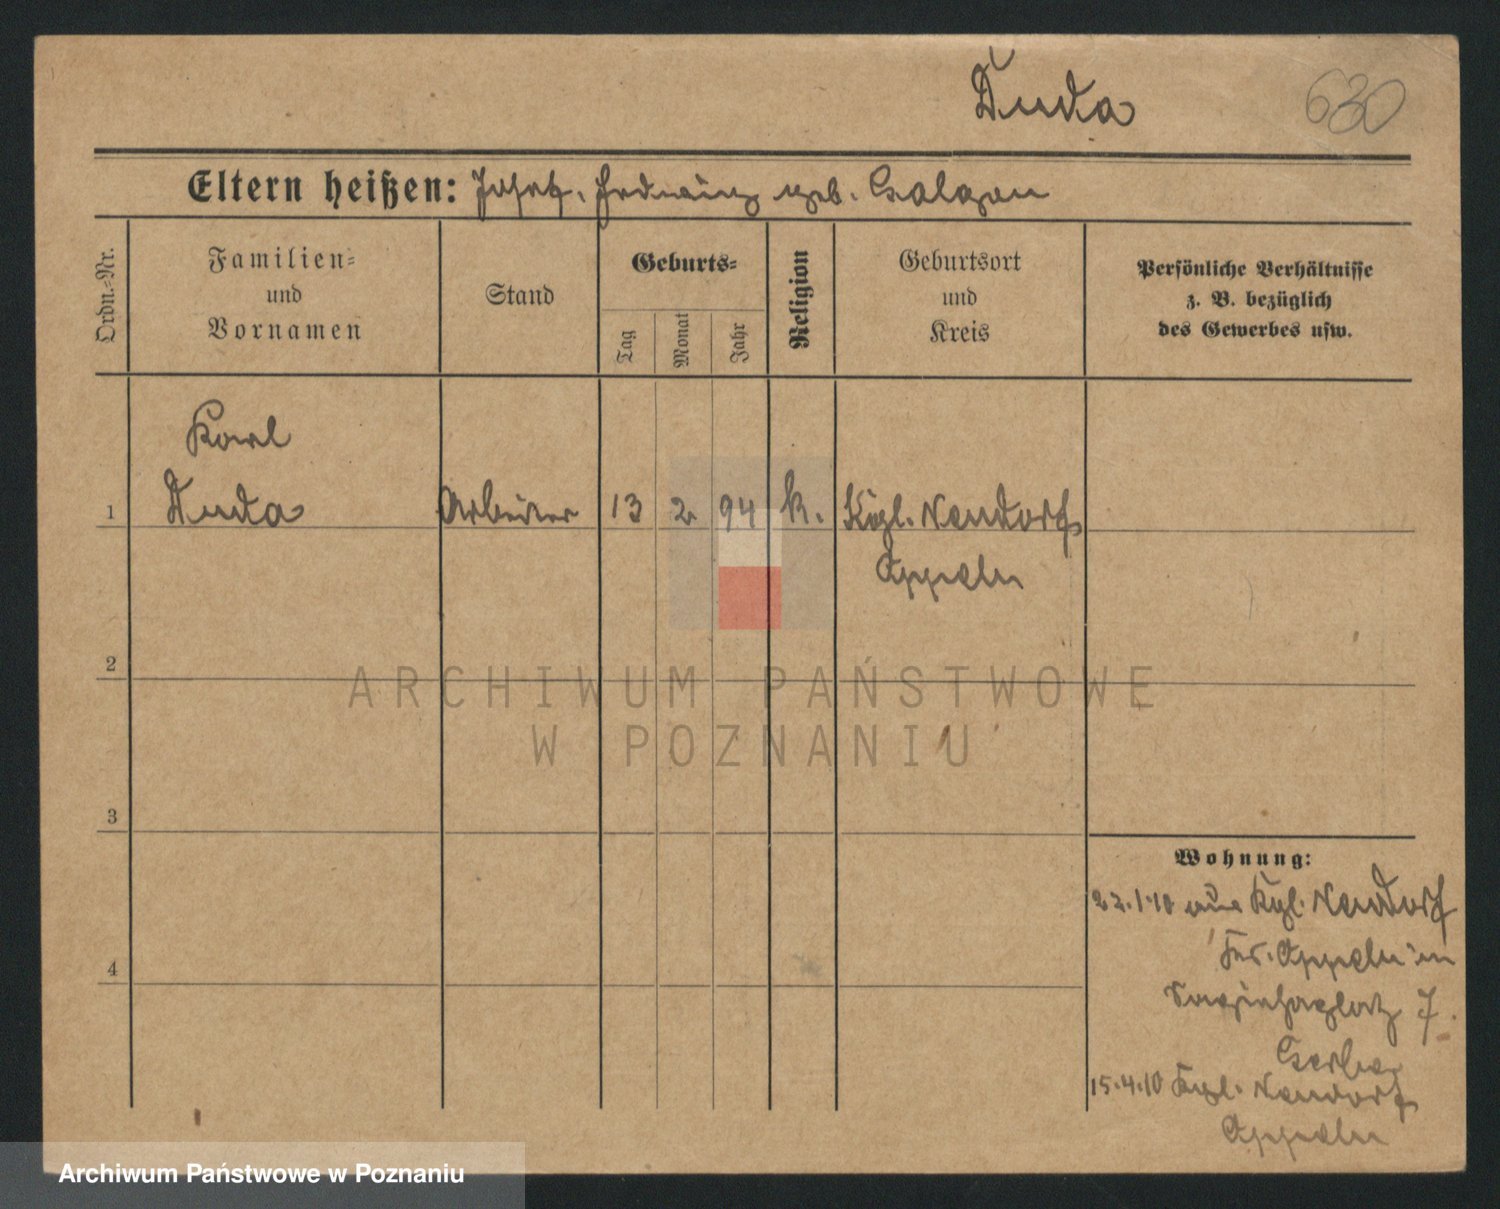 Duda
630
Eltern heißen: Josef, Hedwig geb.
Ordn.-Nr.
Familien-
und
Vornamen
Stand
Geburts-
Tag
Monat
Jahr
Religion
Geburtsort
und
Kreis
Persönliche Verhältnisse
z. B. bezüglich
des Gewerbes usw.
Karl
1 Duda Arbeiter 13 2 94 k. Kgl. Neudorf
Oppeln
2
ARCHIWUM PAŃSTWOWE
W POZNANIU
3
Wohnung:
22.1.10 aus Kgl. Neudorf
Krs. Oppeln in
Sapiehaplatz 7.
4
15.4.10 Kgl. Neudorf
Oppeln
Archiwum Państwowe w Poznaniu